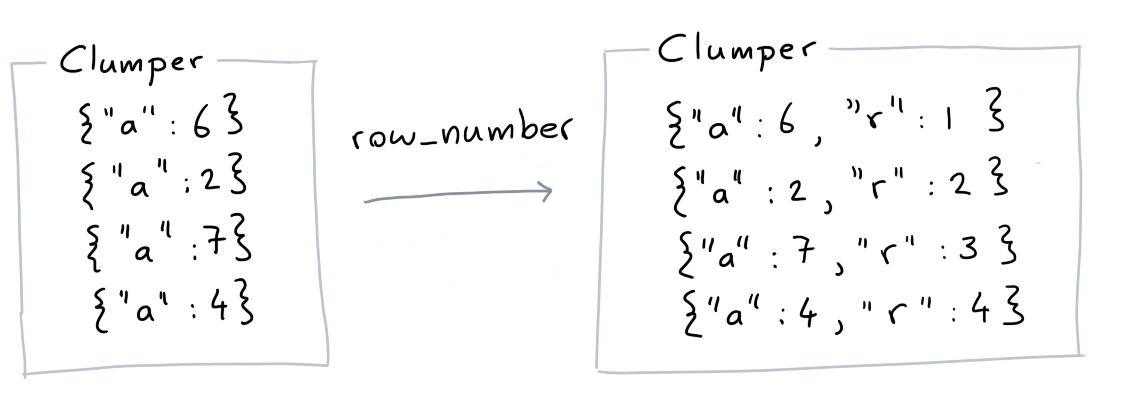 Clumper
{"a" : 6}
{"a" : 2}
{"a" : 7}
{"a" : 4}
row_number
Clumper
{"a" : 6, "r" : 1}
{"a" : 2, "r" : 2}
{"a" : 7, "r" : 3}
{"a" : 4, "r" : 4}